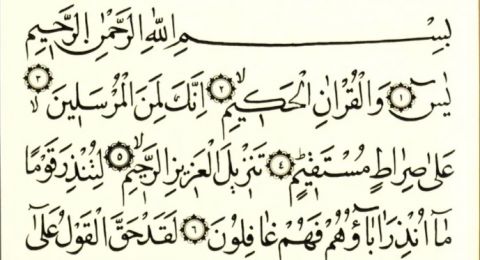 بِسْمِ اللّٰهِ الرَّحْمٰنِ الرَّحِيمِ
يٰسٓ ﴿١﴾ وَالْقُرْاٰنِ الْحَكِيمِۙ ﴿٢﴾ اِنَّكَ لَمِنَ الْمُرْسَلِينَۙ ﴿٣﴾
عَلٰى صِرَاطٍ مُسْتَقِيمٍۜ ﴿٤﴾ تَنْزِيلَ الْعَزِيزِ الرَّحِيمِۙ ﴿٥﴾ لِتُنْذِرَ قَوْمًا
مَٓا اُنْذِرَ اٰبَٓاؤُ۬هُمْ فَهُمْ غَافِلُونَ ﴿٦﴾ لَقَدْ حَقَّ الْقَوْلُ عَلٰٓى